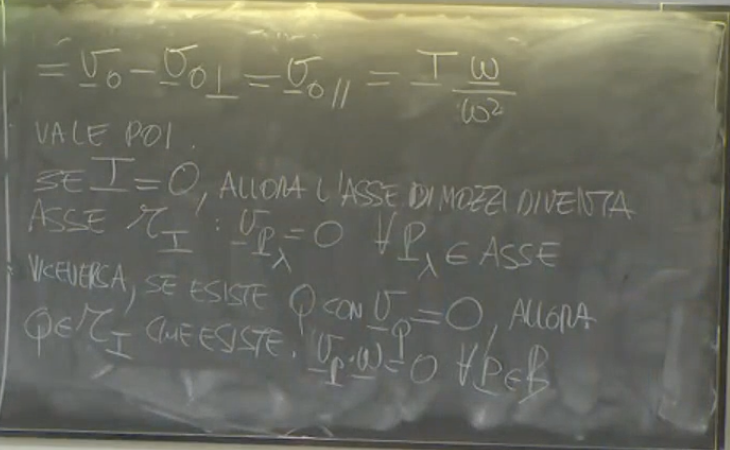 = v₀ - v₀⊥ = v₀// = I ω/ω²
VALE POI.
SE I = 0, ALLORA L'ASSE DI MOZZI DIVENTA
ASSE r_I : v_Pλ = 0 ∀P_λ ∈ ASSE
VICEVERSA, SE ESISTE Q CON v_Q = 0, ALLORA
Q ∈ r_I CHE ESISTE. v_P·ω = 0 ∀P ∈ B